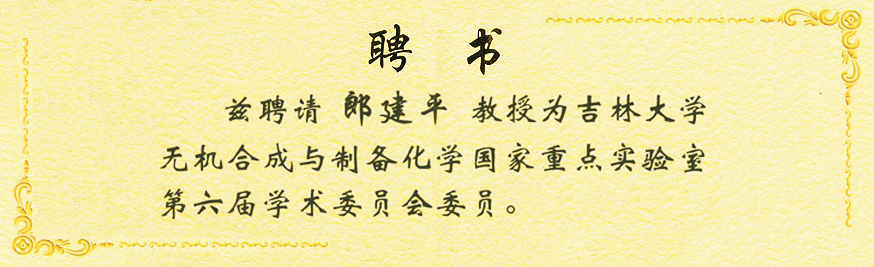 聘 书
兹聘请 郎建平 教授为吉林大学
无机合成与制备化学国家重点实验室
第六届学术委员会委员。